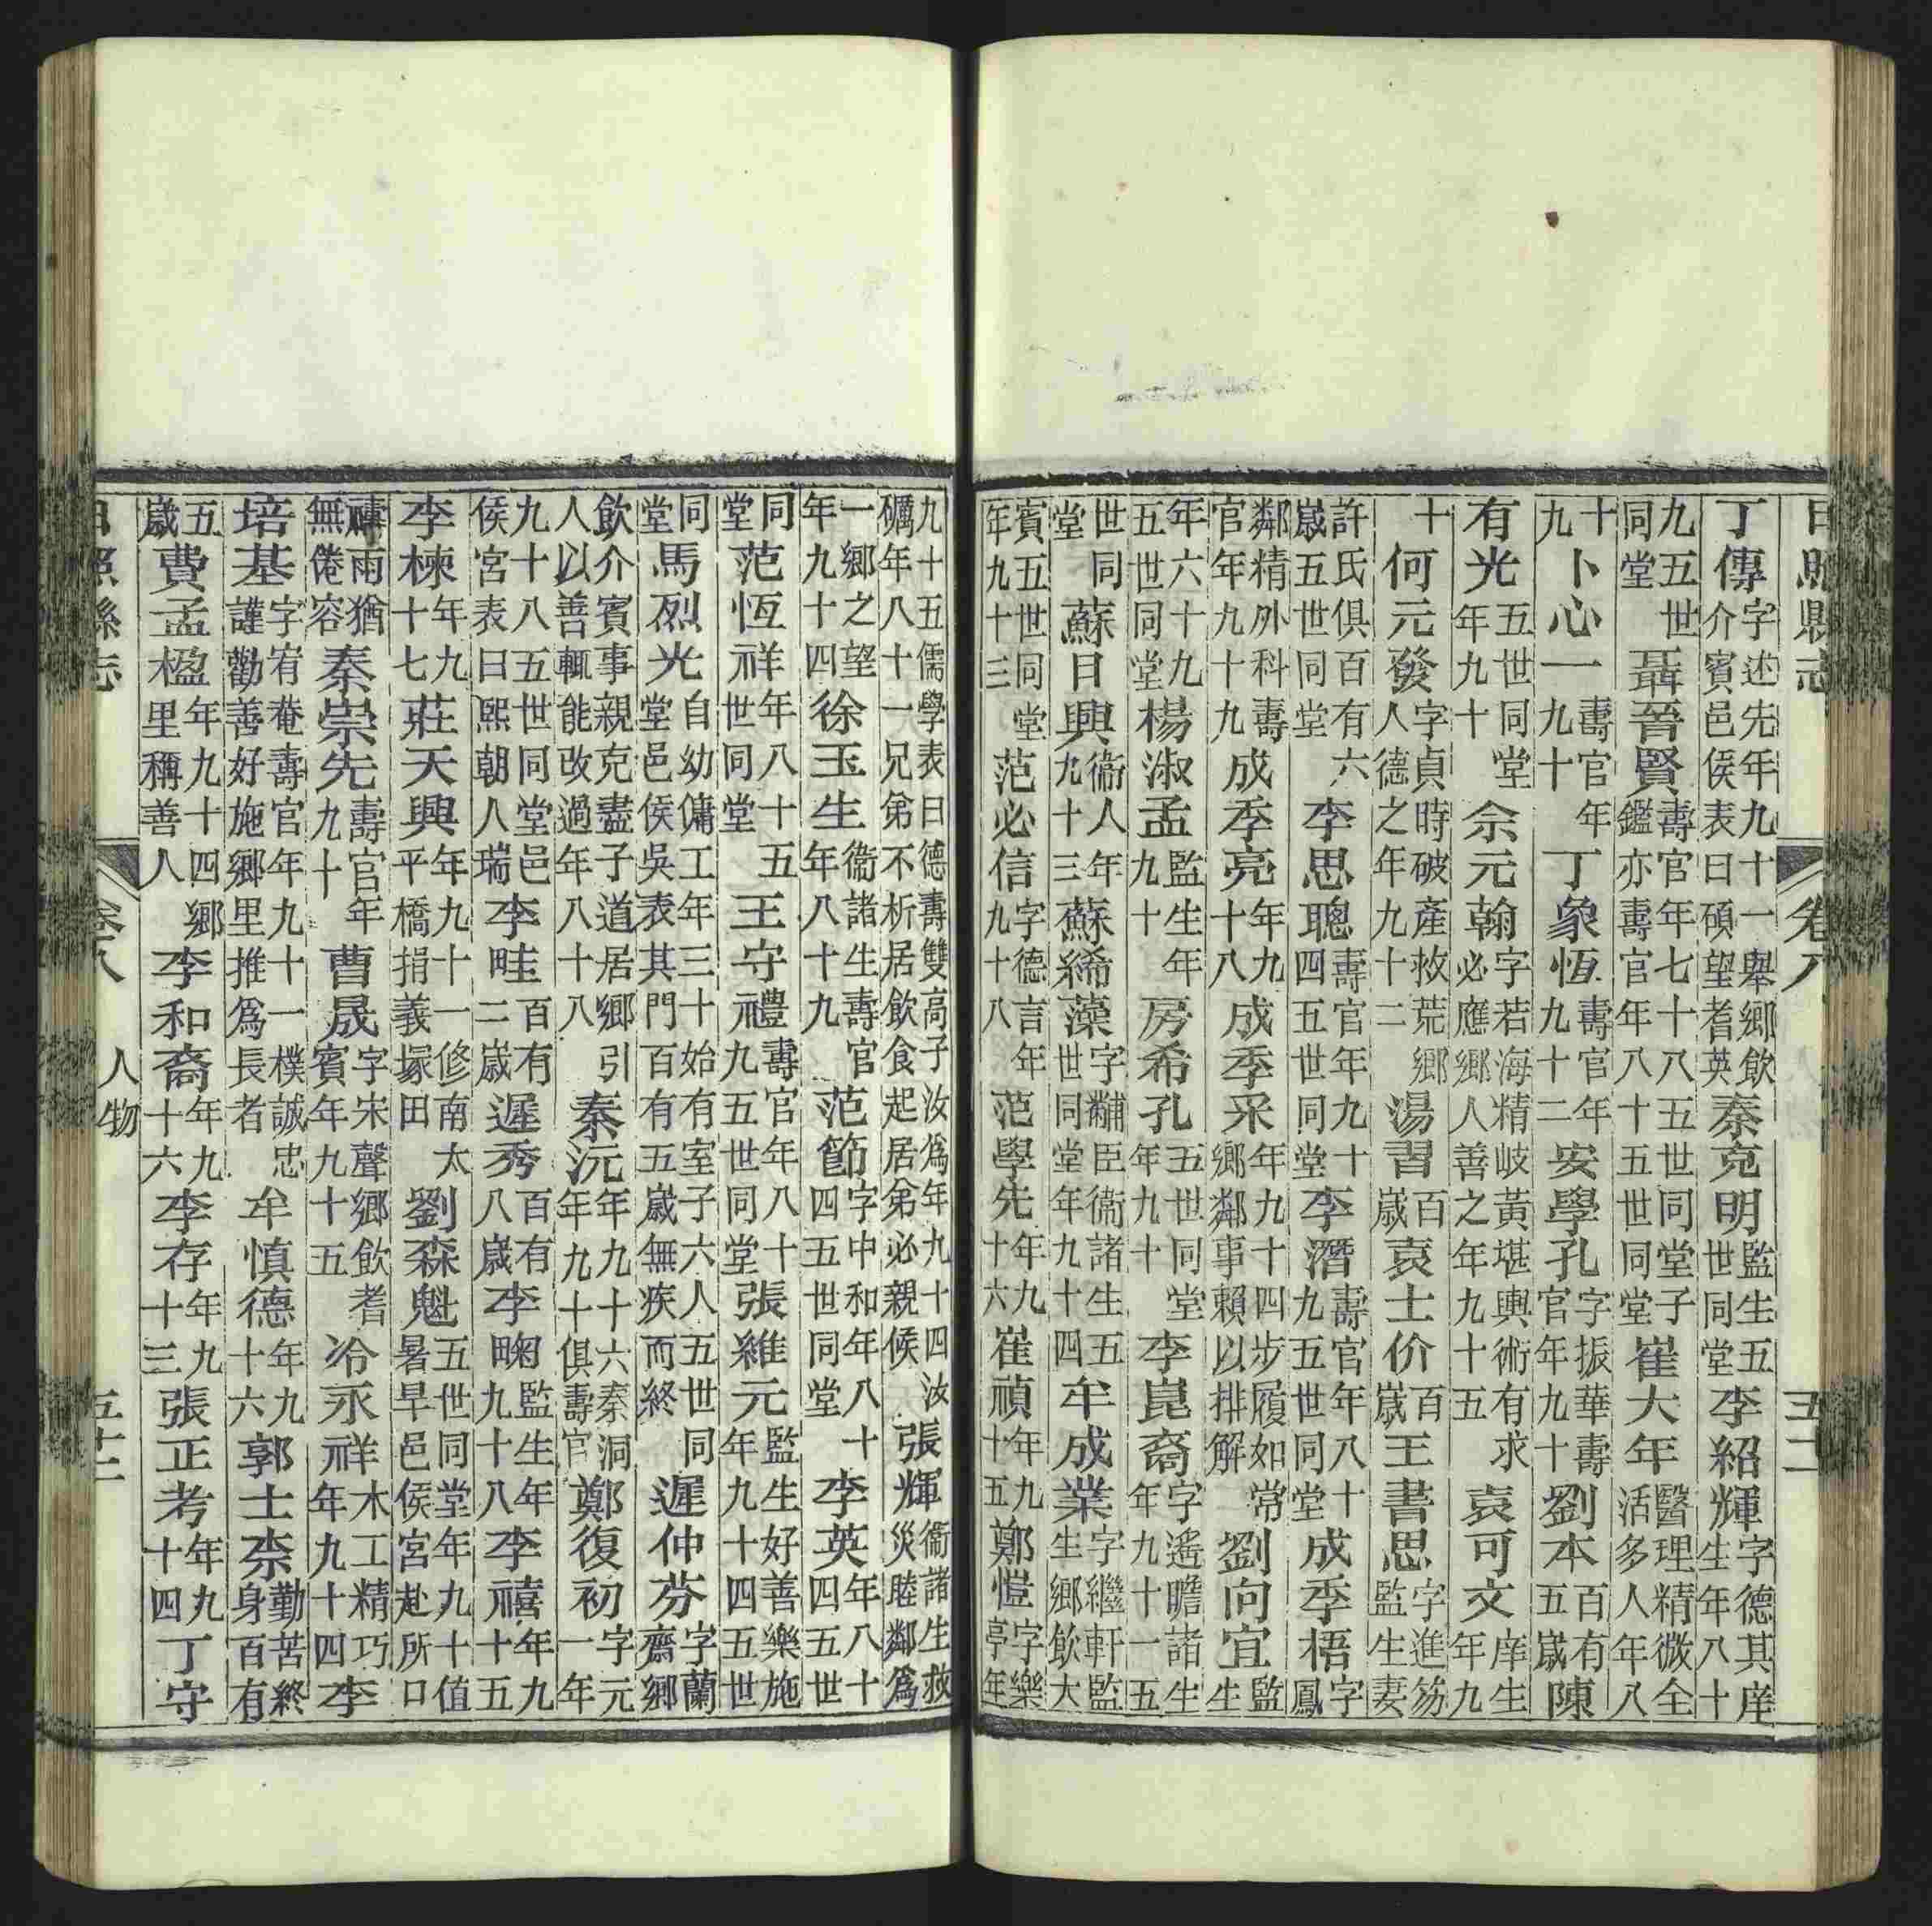 日照縣志 卷八 五十二
丁傳字述先年九十一舉鄉飲介賓邑侯表曰碩望耆英秦克明監生五世同堂李紹輝字德其庠生年八十
九五世同堂聶晉賢壽官年七十八五世同堂子鑑亦壽官年八十五世同堂崔大年醫理精微全活多人年八
十九卜心一壽官年九十丁象恆壽官年九十二安學孔字振華壽官年九十劉本百有五歲陳
有光五世同堂年九十余元翰字若海精岐黃堪輿術有求必應鄉人善之年九十五袁可文庠生年九
十何元發字貞時破產救荒鄉人德之年九十二湯習百歲袁士价百歲王書思字進笏監生妻
許氏俱百有六歲五世同堂李思聰壽官年九十四五世同堂李潛壽官年八十九五世同堂成季梧字鳳
鄰精外科壽官年九十九成季亮年九十八成季采年九十四步履如常鄉鄰事賴以排解劉向宜監生
年六十九五世同堂楊淑孟監生年九十房希孔五世同堂年九十李崑裔字遙瞻諸生年九十一五
世同堂蘇日興衞人年九十三蘇綈藻字黼臣衞諸生五世同堂年九十四牟成業字繼軒監生鄉飲大
賓五世同堂年九十三范必信字德言年九十八范學先年九十六崔禎年九十五鄭愷字樂亭年
九十五儒學表曰德壽雙高子汝爲年九十四汝礪年八十一兄弟不析居飲食起居弟必親候張輝衞諸生救災睦鄰爲
一鄉之望年九十四徐玉生衞諸生壽官年八十九范節字中和年八十四五世同堂李英年八十四五世
同堂范恆祥年八十五世同堂王守禮壽官年八十九五世同堂張維元監生好善樂施年九十四五世
同堂馬烈光自幼傭工年三十始有室子六人五世同堂邑侯吳表其門百有五歲無疾而終遲仲芬字蘭齋鄉
飲介賓事親克盡子道居鄉引人以善輒能改過年八十八秦沅年九十六秦洞年九十俱壽官鄭復初字元一年
九十八五世同堂邑侯宮表曰熙朝人瑞李畦百有二歲遲秀百有八歲李畹監生年九十八李禧年九十五
李楝年九十七莊天興年九十一修南太平橋捐義塚田劉森魁五世同堂年九十值暑旱邑侯宮赴所口
禱雨猶無倦容秦崇先壽官年九十曹晟字宋聲鄉飲耆賓年九十五冷永祥木工精巧年九十四李
培基字宥菴壽官年九十一樸誠忠謹勸善好施鄉里推爲長者牟慎德年九十六郭士柰勤苦終身百有
五歲費孟楹年九十四鄉里稱善人李和裔年九十六李存年九十三張正考年九十四丁守
日照縣志 卷八 人物 五十二